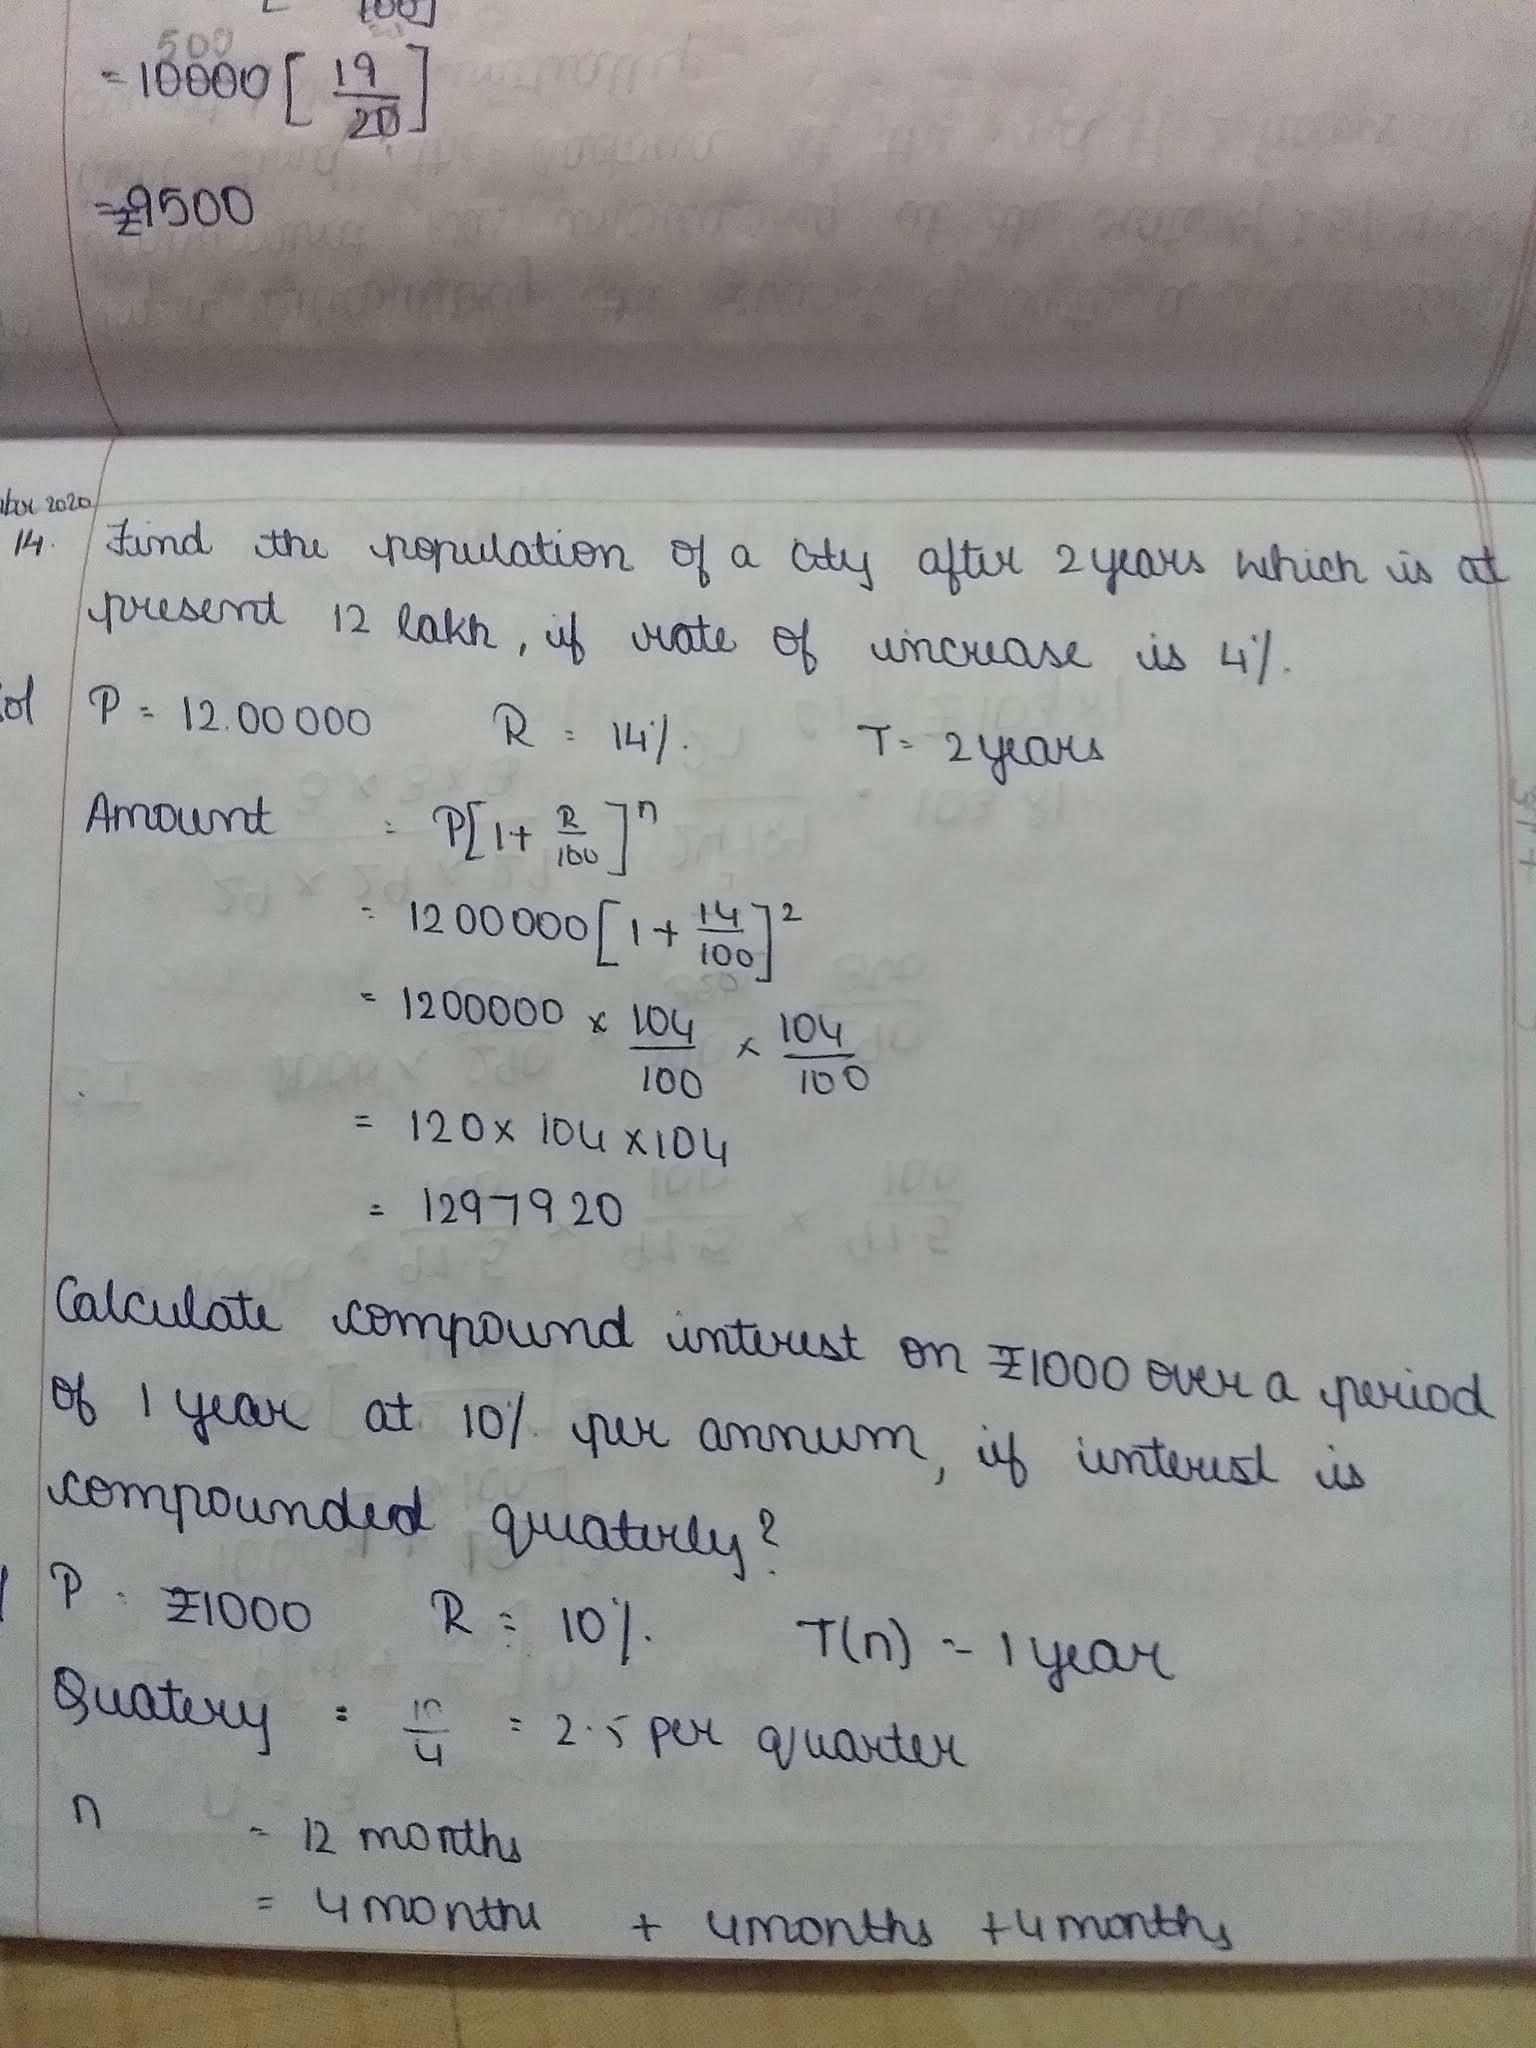 100]
500
= 10000 [ 19/20 ]
= ₹9500
ber 2020
14. Find the population of a city after 2 years which is at
present 12 lakh, if rate of increase is 4%.
Sol P = 12.00000 R = 14%. T = 2 years
Amount = P[1 + R/100]ⁿ
= 1200000 [1 + 14/100]²
= 1200000 × 104/100 × 104/100
= 120 × 104 × 104
= 1297920
Calculate compound interest on ₹1000 over a period
of 1 year at 10% per annum, if interest is
compounded quaterly?
P = ₹1000 R = 10%. T(n) = 1 year
Quatery = 10/4 = 2.5 per quarter
n = 12 months
= 4 months + 4 months + 4 months